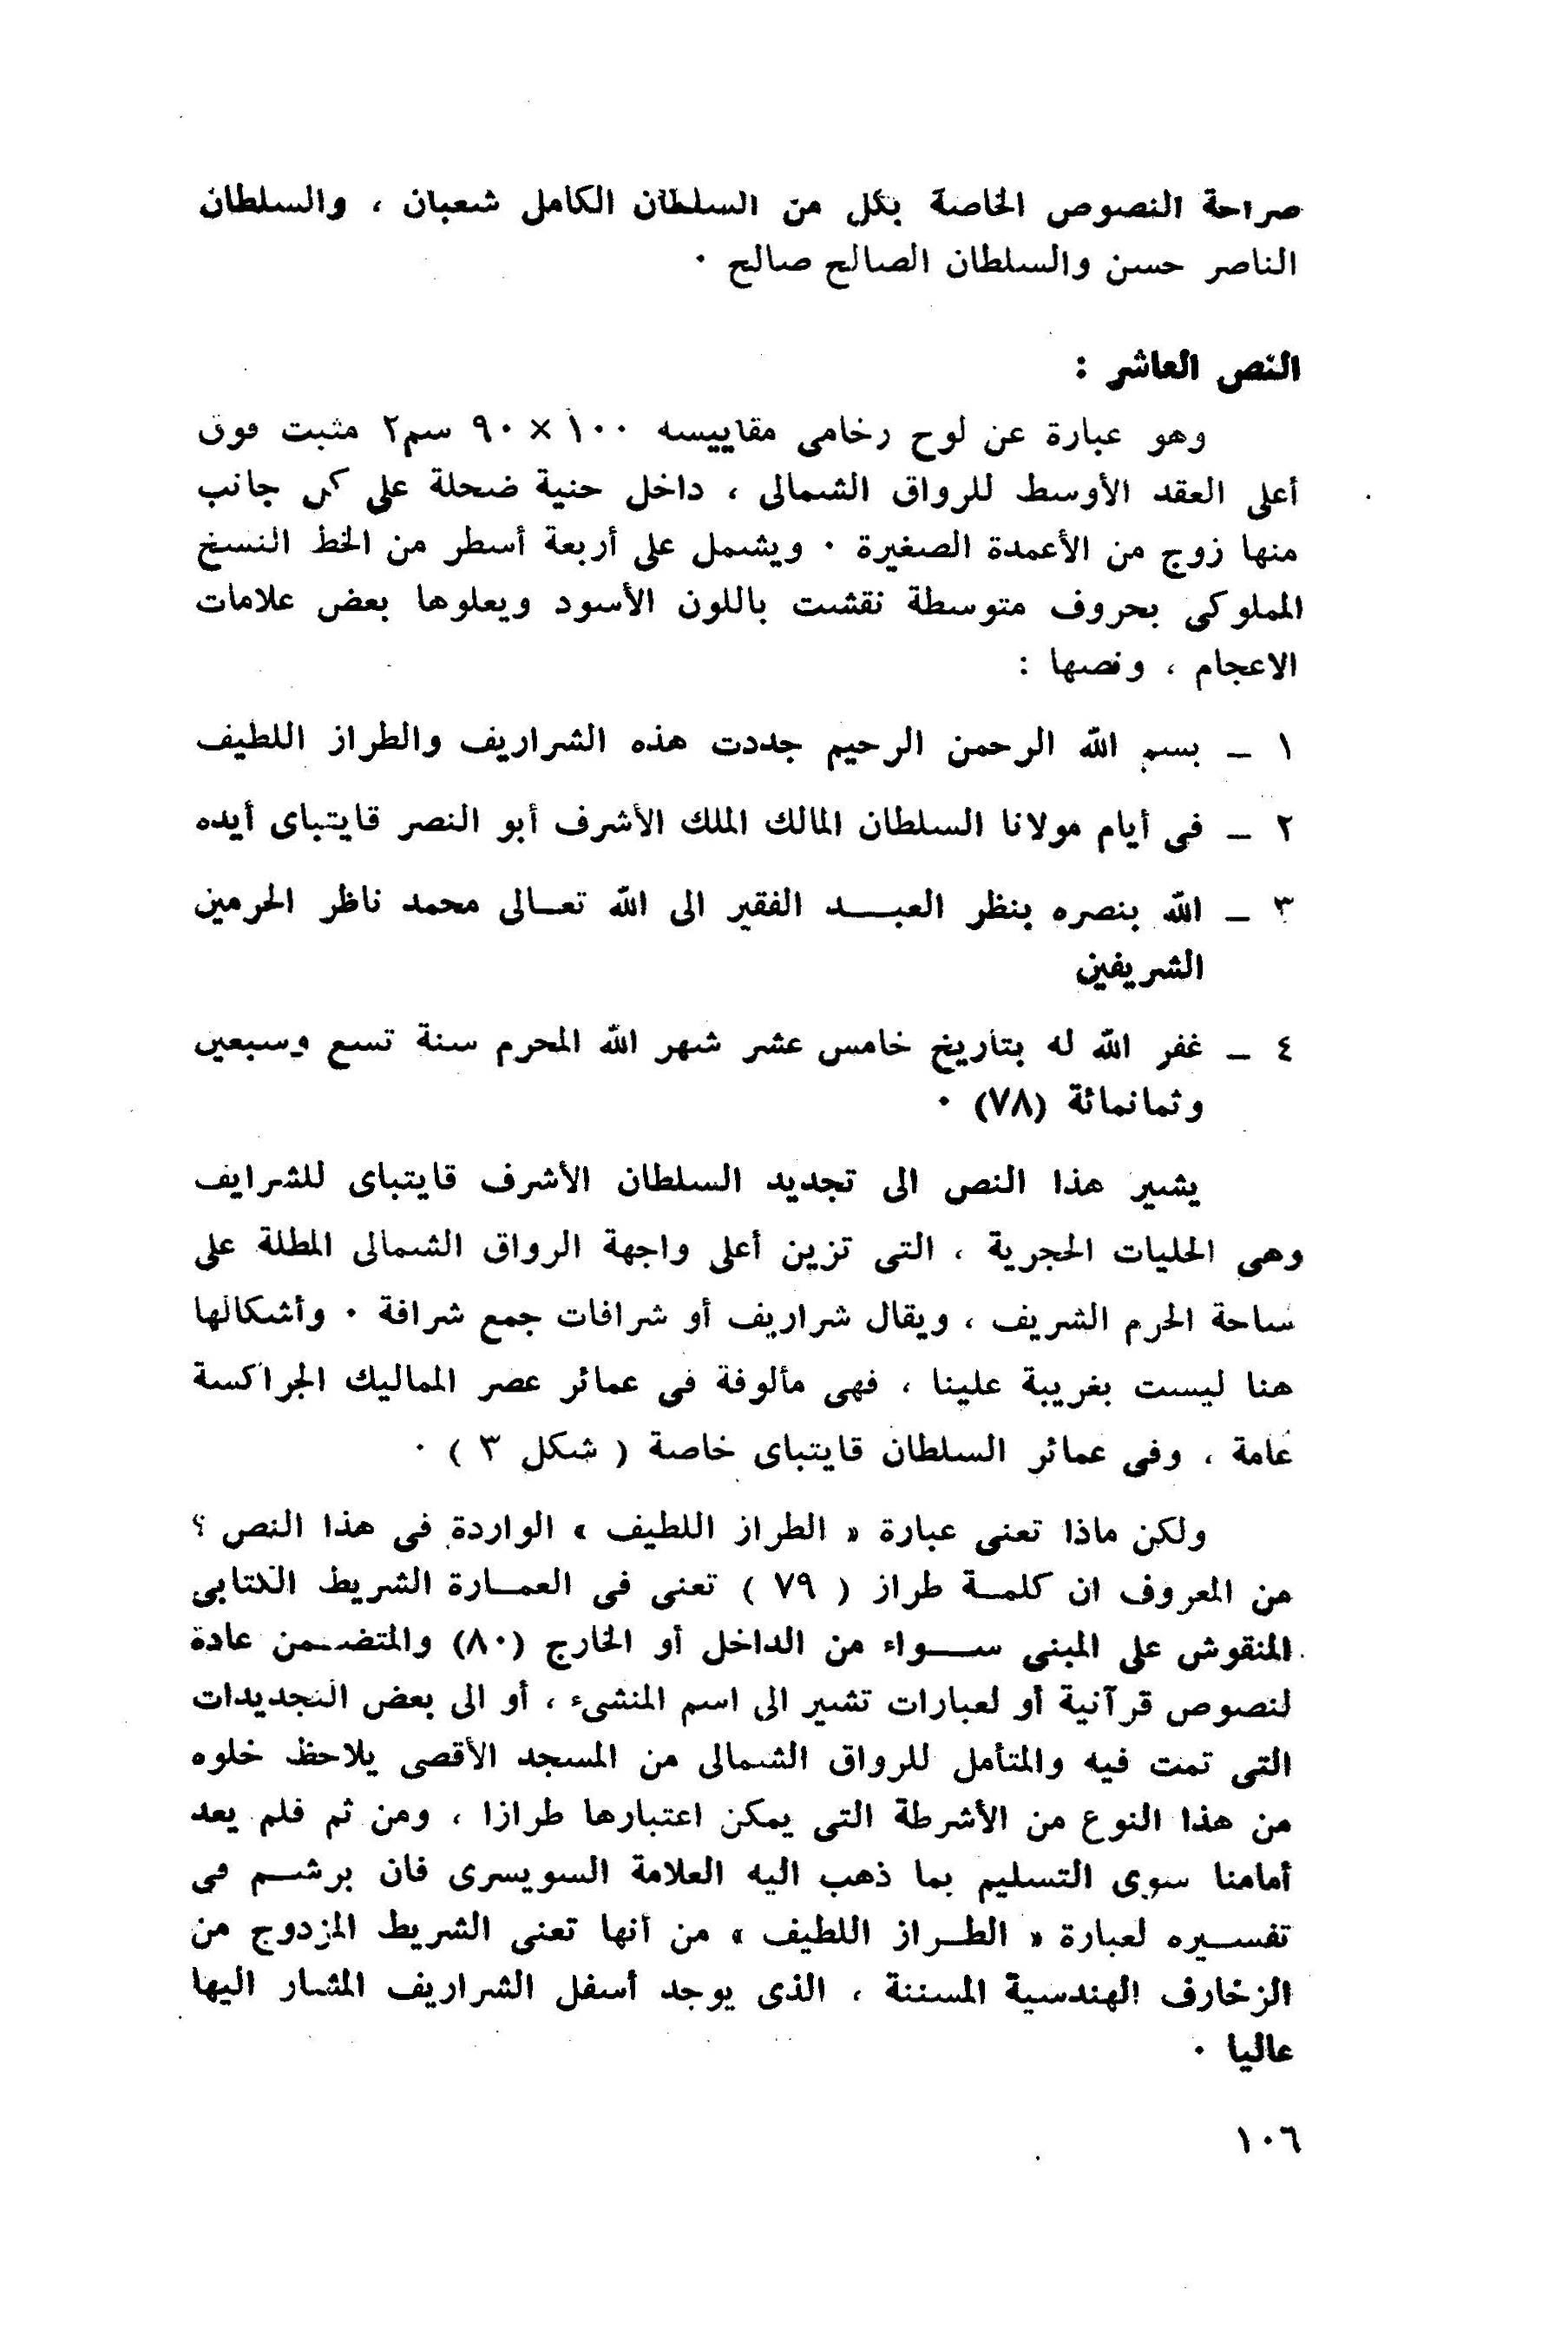 صراحة النصوص الخاصة بكل من السلطان الكامل شعبان ، والسلطان
الناصر حسن والسلطان الصالح صالح ٠
النص العاشر :
وهو عبارة عن لوح رخامى مقاييسه ١٠٠ × ٩٠ سم٢ مثبت فوق
أعلى العقد الأوسط للرواق الشمالى ، داخل حنية ضحلة على كل جانب
منها زوج من الأعمدة الصغيرة ٠ ويشمل على أربعة أسطر من الخط النسخ
المملوكى بحروف متوسطة نقشت باللون الأسود ويعلوها بعض علامات
الاعجام ، ونصها :
١ ــ بسم الله الرحمن الرحيم جددت هذه الشراريف والطراز اللطيف
٢ ــ فى أيام مولانا السلطان المالك الملك الأشرف أبو النصر قايتباى أيده
٣ ــ الله بنصره بنظر العبــد الفقير الى الله تعــالى محمد ناظر الحرمين
الشريفين
٤ ــ غفر الله له بتاريخ خامس عشر شهر الله المحرم سنة تسع وسبعين
وثمانمائة (٧٨) ٠
يشير هذا النص الى تجديد السلطان الأشرف قايتباى للشرايف
وهى الحليات الحجرية ، التى تزين أعلى واجهة الرواق الشمالى المطلة على
ساحة الحرم الشريف ، ويقال شراريف أو شرافات جمع شرافة ٠ وأشكالها
هنا ليست بغريبة علينا ، فهى مألوفة فى عمائر عصر المماليك الجراكسة
عامة ، وفى عمائر السلطان قايتباى خاصة ( شكل ٣ ) ٠
ولكن ماذا تعنى عبارة « الطراز اللطيف » الواردة فى هذا النص ؟
من المعروف ان كلمــة طراز ( ٧٩ ) تعنى فى العمــارة الشريط الكتابى
المنقوش على المبنى ســواء من الداخل أو الخارج (٨٠) والمتضــمن عادة
لنصوص قرآنية أو لعبارات تشير الى اسم المنشىء ، أو الى بعض التجديدات
التى تمت فيه والمتأمل للرواق الشمالى من المسجد الأقصى يلاحظ خلوه
من هذا النوع من الأشرطة التى يمكن اعتبارها طرازا ، ومن ثم فلم يعد
أمامنا سوى التسليم بما ذهب اليه العلامة السويسرى فان برشــم فى
تفســيره لعبارة « الطــراز اللطيف » من أنها تعنى الشريط المزدوج من
الزخارف الهندسية المسننة ، الذى يوجد أسفل الشراريف المشار اليها
عاليا ٠
١٠٦